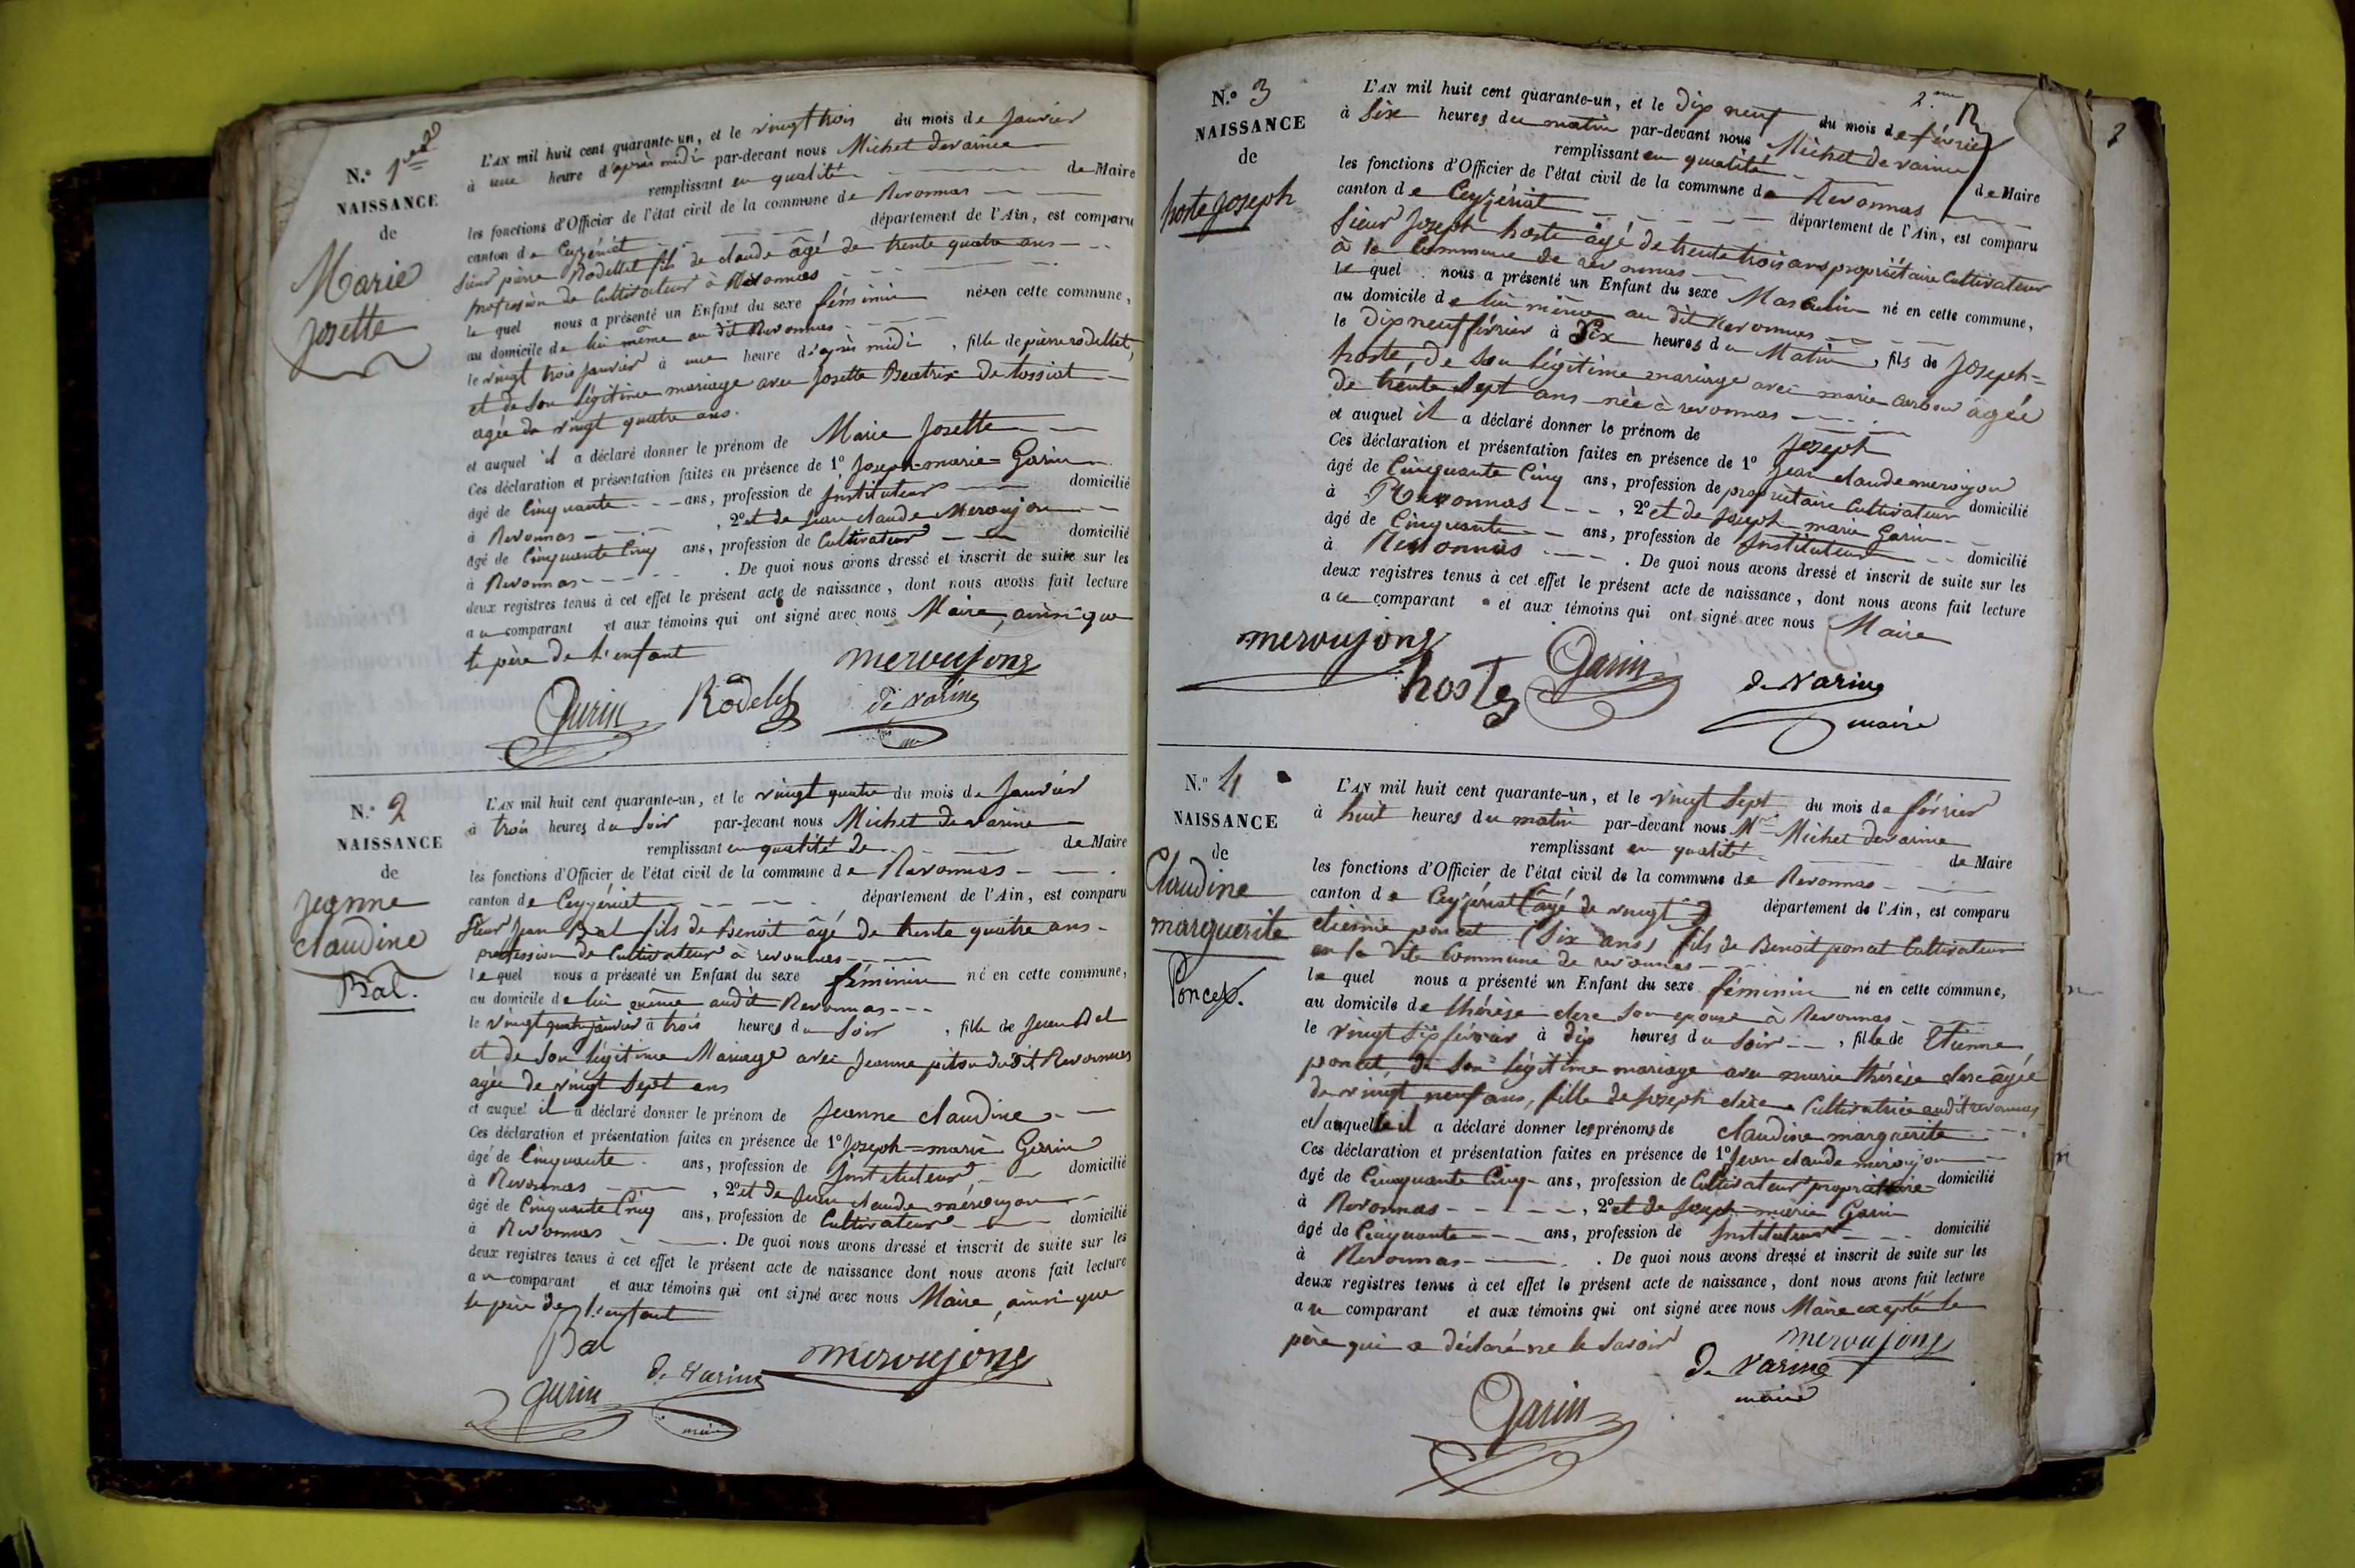 N.º 1er
NAISSANCE
de
Marie
Josette
L'AN mil huit cent quarante-un, et le vingt trois du mois de Janvier
à une heure d'après midi par-devant nous Michel devarine
remplissant en qualité de Maire
les fonctions d'Officier de l'état civil de la commune de Revonnas
canton de Ceyzériat département de l'Ain, est comparu
Sieur pierre Rodellet fils de claude âgé de trente quatre ans
profession de Cultivateur à Revonnas
le quel nous a présenté un Enfant du sexe féminin né en cette commune,
au domicile de lui même au dit Revonnas
le vingt trois janvier à une heure d'après midi, fille de pierre rodellet,
et de son légitime mariage avec Josette Beatrix de tossiat
agée de vingt quatre ans.
et auquel il a déclaré donner le prénom de Marie Josette
Ces déclaration et présentation faites en présence de 1º Joseph=marie=Garin
âgé de Cinquante ans, profession de Instituteur domicilié
à Revonnas, 2º et de Jean claude Meroujon
âgé de Cinquante Cinq ans, profession de Cultivateur domicilié
à Revonnas. De quoi nous avons dressé et inscrit de suite sur les
deux registres tenus à cet effet le présent acte de naissance, dont nous avons fait lecture
au comparant et aux témoins qui ont signé avec nous Maire, ainsi que
le père de l'enfant
meroujong
Garin Rodelet de varine
N.º 2
NAISSANCE
de
Jeanne
claudine
Bal.
L'AN mil huit cent quarante-un, et le vingt quatre du mois de Janvier
à trois heures du Soir par-devant nous Michel devarine
remplissant en qualité de de Maire
les fonctions d'Officier de l'état civil de la commune de Revonnas
canton de Ceyzériat département de l'Ain, est comparu
Sieur Jean Bal fils de Benoit âgé de trente quatre ans
profession de Cultivateur à revonnas
le quel nous a présenté un Enfant du sexe féminin né en cette commune,
au domicile de lui même audit Revonnas
le vingt quatre janvier à trois heures du Soir, fille de Jean Bal
et de Son légitime Mariage avec Jeanne piton dudit Revonnas
agée de vingt Sept ans
et auquel il a déclaré donner le prénom de Jeanne claudine
Ces déclaration et présentation faites en présence de 1º Joseph=marie Garin
âgé de Cinquante ans, profession de Instituteur domicilié
à Revonnas, 2º et de Jean claude méroujon
âgé de Cinquante Cinq ans, profession de Cultivateur domicilié
à Revonnas. De quoi nous avons dressé et inscrit de suite sur les
deux registres tenus à cet effet le présent acte de naissance dont nous avons fait lecture
au comparant et aux témoins qui ont signé avec nous Maire, ainsi que
le père de l'enfant
Bal
Garin de varine meroujong
maire
2.me
2
N.º 3
NAISSANCE
de
hoste Joseph
L'AN mil huit cent quarante-un, et le dix neuf du mois de février
à Six heures du matin par-devant nous Michel devarine
remplissant en qualité de Maire
les fonctions d'Officier de l'état civil de la commune de Revonnas
canton de Ceyzériat département de l'Ain, est comparu
Sieur Joseph hoste âgé de trente trois ans propriétaire Cultivateur
à la Commune de revonnas
le quel nous a présenté un Enfant du sexe Masculin né en cette commune,
au domicile de lui même au dit Revonnas
le dix neuf février à Six heures du Matin, fils de Joseph=
hoste, de Son légitime mariage avec marie carbon âgée
de trente Sept ans née à revonnas
et auquel il a déclaré donner le prénom de Joseph
Ces déclaration et présentation faites en présence de 1º Jean claude meroujon
âgé de Cinquante Cinq ans, profession de propriétaire Cultivateur domicilié
à Revonnas, 2º et de Joseph marie Garin
âgé de Cinquante ans, profession de Instituteur domicilié
à Revonnas. De quoi nous avons dressé et inscrit de suite sur les
deux registres tenus à cet effet le présent acte de naissance, dont nous avons fait lecture
au comparant et aux témoins qui ont signé avec nous Maire
meroujong
hoste Garin de varine
maire
N.º 4
NAISSANCE
de
Claudine
marguerite
Poncet.
L'AN mil huit cent quarante-un, et le vingt Sept du mois de février
à huit heures du matin par-devant nous Mr Michel devarine
remplissant en qualité de Maire
les fonctions d'Officier de l'état civil de la commune de Revonnas
canton de Ceyzériat (âgé de vingt département de l'Ain, est comparu
etienne poncet (Six ans) fils de Benoit poncet Cultivateur
en la dite Commune de revonnas
le quel nous a présenté un Enfant du sexe féminin né en cette commune,
au domicile de thérèse clerc Son epouse à Revonnas
le vingt Six février à dix heures du Soir, fille de Etienne
poncet, de Son légitime mariage avec marie thérèse clerc âgée
de vingt neuf ans, fille de Joseph clerc Cultivatrice audit revonnas
et auquelle il a déclaré donner les prénoms de claudine marguerite
Ces déclaration et présentation faites en présence de 1º Jean claude méroujon
âgé de Cinquante Cinq ans, profession de Cultivateur propriétaire domicilié
à Revonnas, 2º et de Joseph marie Garin
âgé de Cinquante ans, profession de Instituteur domicilié
à Revonnas. De quoi nous avons dressé et inscrit de suite sur les
deux registres tenus à cet effet le présent acte de naissance, dont nous avons fait lecture
au comparant et aux témoins qui ont signé avec nous Maire excepté le
père qui a déclaré ne le Savoir
meroujong
de varine
maire
Garin